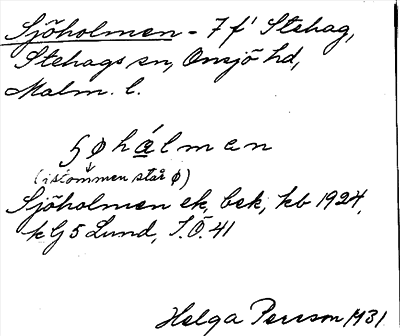 Sjöholmen - 7 f' Stehag,
Stehags sn, Onsjö hd,
Malm. l.
ʂøhálmen
(i stommen står ø)
Sjöholmen ek, bek, kb 1924,
k G5 Lund, S.Ö. 41
Helga Persson 1931